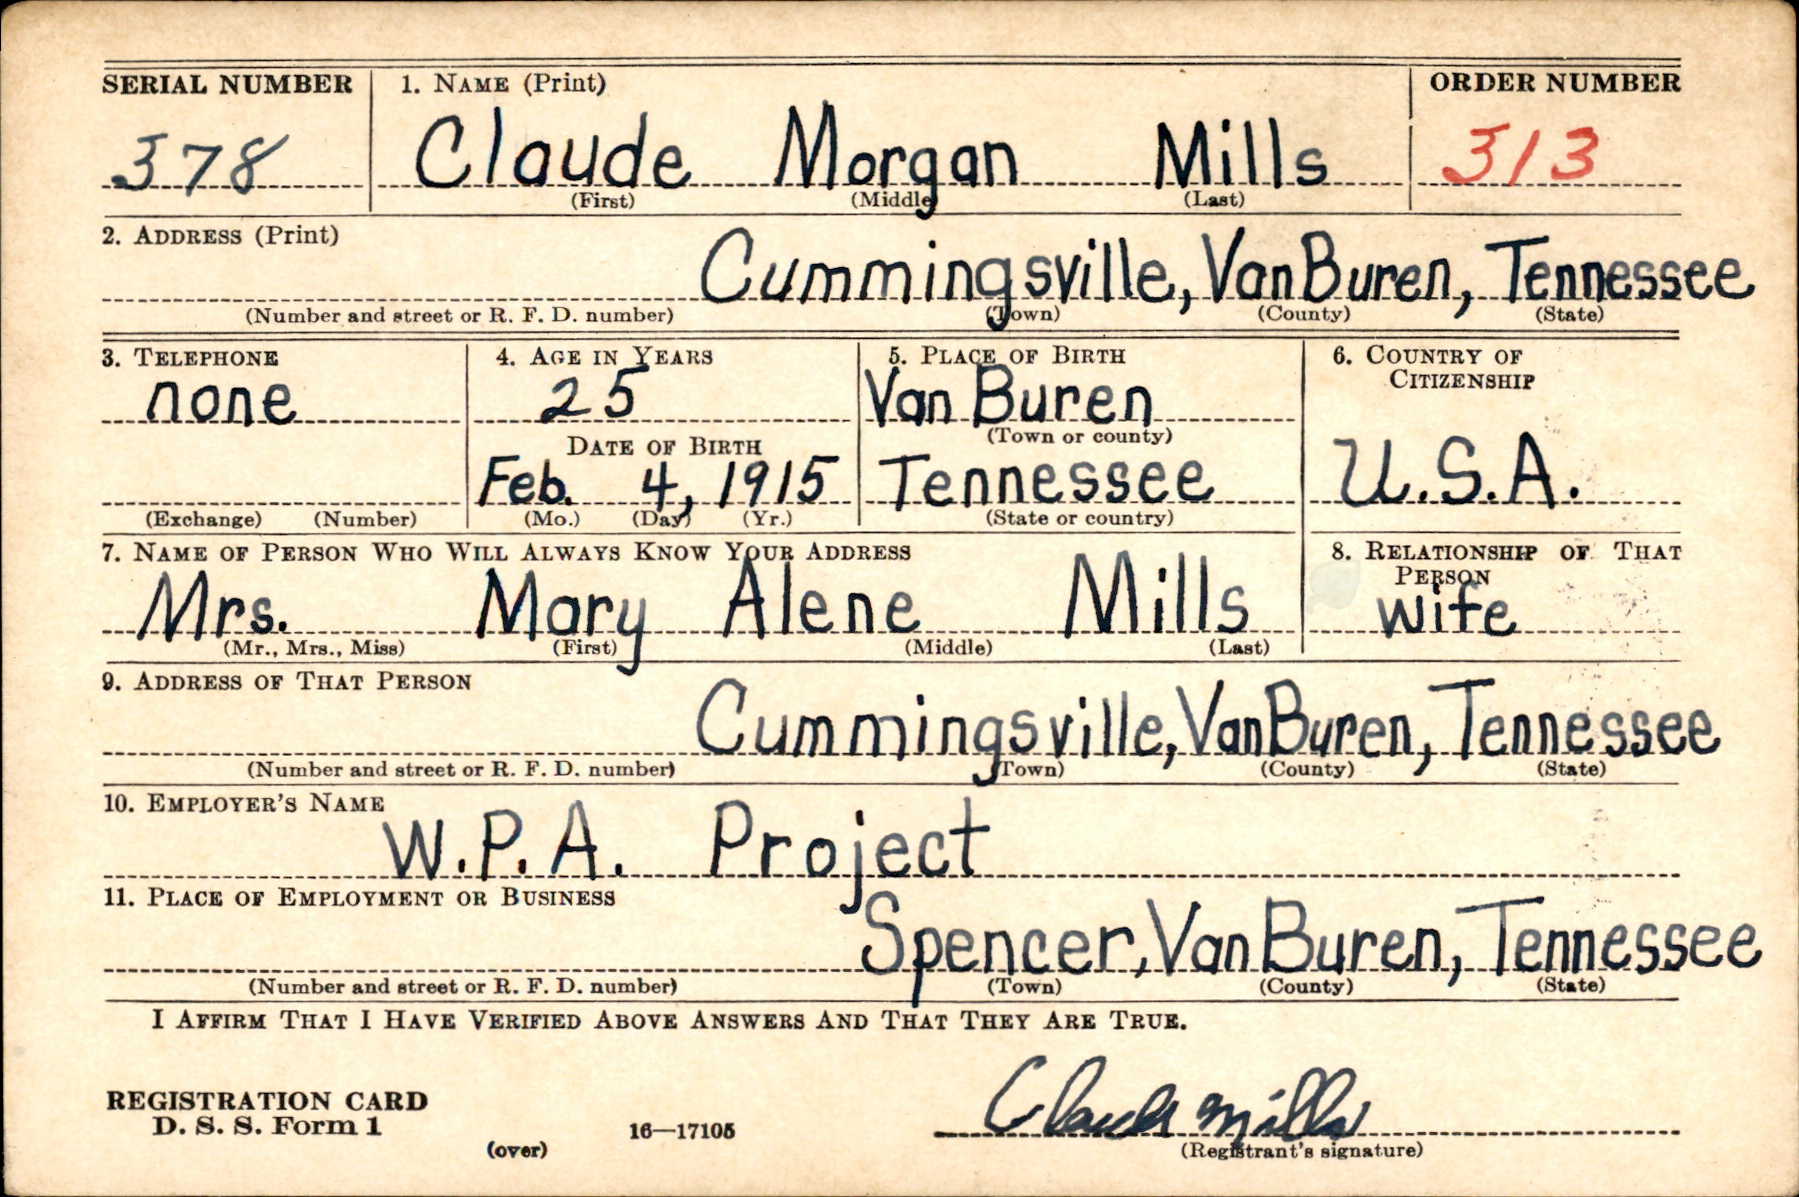 SERIAL NUMBER 1. NAME (Print) ORDER NUMBER
378 Claude Morgan Mills 313
(First) (Middle) (Last)
2. ADDRESS (Print)
Cummingsville, Van Buren, Tennessee
(Number and street or R. F. D. number) (Town) (County) (State)
3. TELEPHONE 4. AGE IN YEARS 5. PLACE OF BIRTH 6. COUNTRY OF
CITIZENSHIP
none 25 Van Buren
(Town or county)
DATE OF BIRTH
Feb. 4, 1915 Tennessee U.S.A.
(Exchange) (Number) (Mo.) (Day) (Yr.) (State or country)
7. NAME OF PERSON WHO WILL ALWAYS KNOW YOUR ADDRESS 8. RELATIONSHIP OF THAT
PERSON
Mrs. Mary Alene Mills wife
(Mr., Mrs., Miss) (First) (Middle) (Last)
9. ADDRESS OF THAT PERSON
Cummingsville, Van Buren, Tennessee
(Number and street or R. F. D. number) (Town) (County) (State)
10. EMPLOYER'S NAME
W.P.A. Project
11. PLACE OF EMPLOYMENT OR BUSINESS
Spencer, Van Buren, Tennessee
(Number and street or R. F. D. number) (Town) (County) (State)
I AFFIRM THAT I HAVE VERIFIED ABOVE ANSWERS AND THAT THEY ARE TRUE.
Claude Mills
REGISTRATION CARD
D. S. S. Form 1 16—17105
(over) (Registrant's signature)